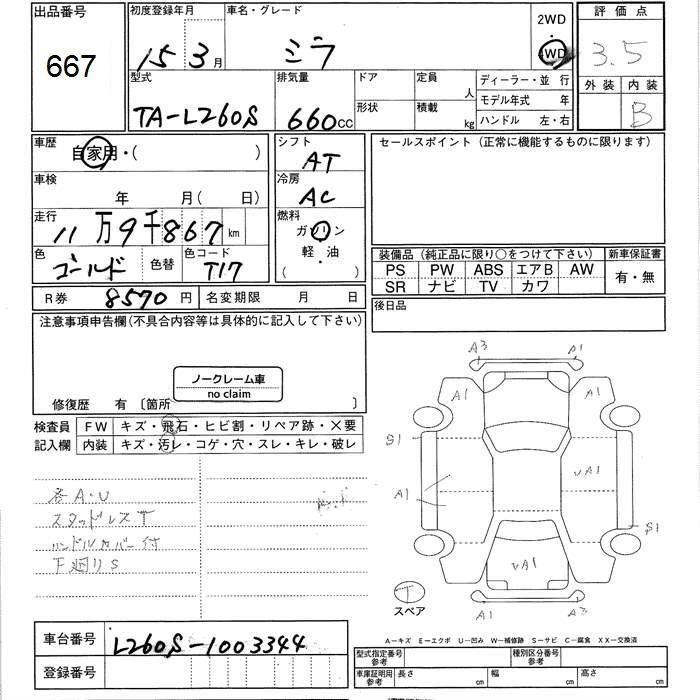 出品番号 初度登録年月 車名・グレード 2WD 評価点
667 15 3月 ミラ 4WD 3.5
型式 排気量 ドア 定員 人 ディーラー・並 行 外装 内装
TA-L260S 660cc 形状 積載 kg モデル年式 年 B
ハンドル 左・右
車歴 自家用・( ) シフト AT セールスポイント (正常に機能するものに限ります)
車検 年 月( 日) 冷房 AC
走行 11万9千867km 燃料 ガソリン
軽・油
( )
色 ゴールド 色替 色コード T17
装備品 (純正品に限り○をつけて下さい) 新車保証書
PS PW ABS エアB AW 有・無
SR ナビ TV カワ
R券 8570円 名変期限 月 日 後日品
注意事項申告欄(不具合内容等は具体的に記入して下さい)
ノークレーム車
no claim
修復歴 有 〔箇所 〕
検査員 FW キズ・飛石・ヒビ割・リペア跡・×要
記入欄 内装 キズ・汚レ・コゲ・穴・スレ・キレ・破レ
各A・U
スタッドレスT
ハンドルカバー付
下廻りS
A3 A1
A1 A1
S1
A1 UA1
S1
UA1
T
スペア A1 A3
A-キズ E-エクボ U-凹み W-補修跡 S-サビ C-腐食 XX-交換済
車台番号 L260S-1003344
登録番号
型式指定番号 参考 種別区分番号 参考
車庫証明用 参考 長さ cm 幅 cm 高さ cm